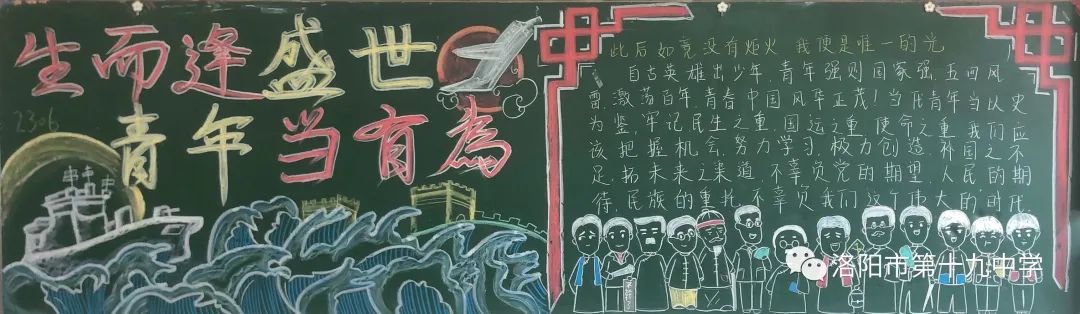 生而逢盛世
青年当有為
2306
此后如竟没有炬火 我便是唯一的光
自古英雄出少年,青年强则国家强,五四风
雷,激荡百年,青春中国风华正茂!当代青年当以史
为鉴,牢记民生之重,国运之重,使命之重,我们应
该把握机会,努力学习,极力创造,补国之不
足,拓未来之来道,不辜负党的期望,人民的期
待,民族的重托,不辜负我们这个伟大的时代
洛阳市第十九中学